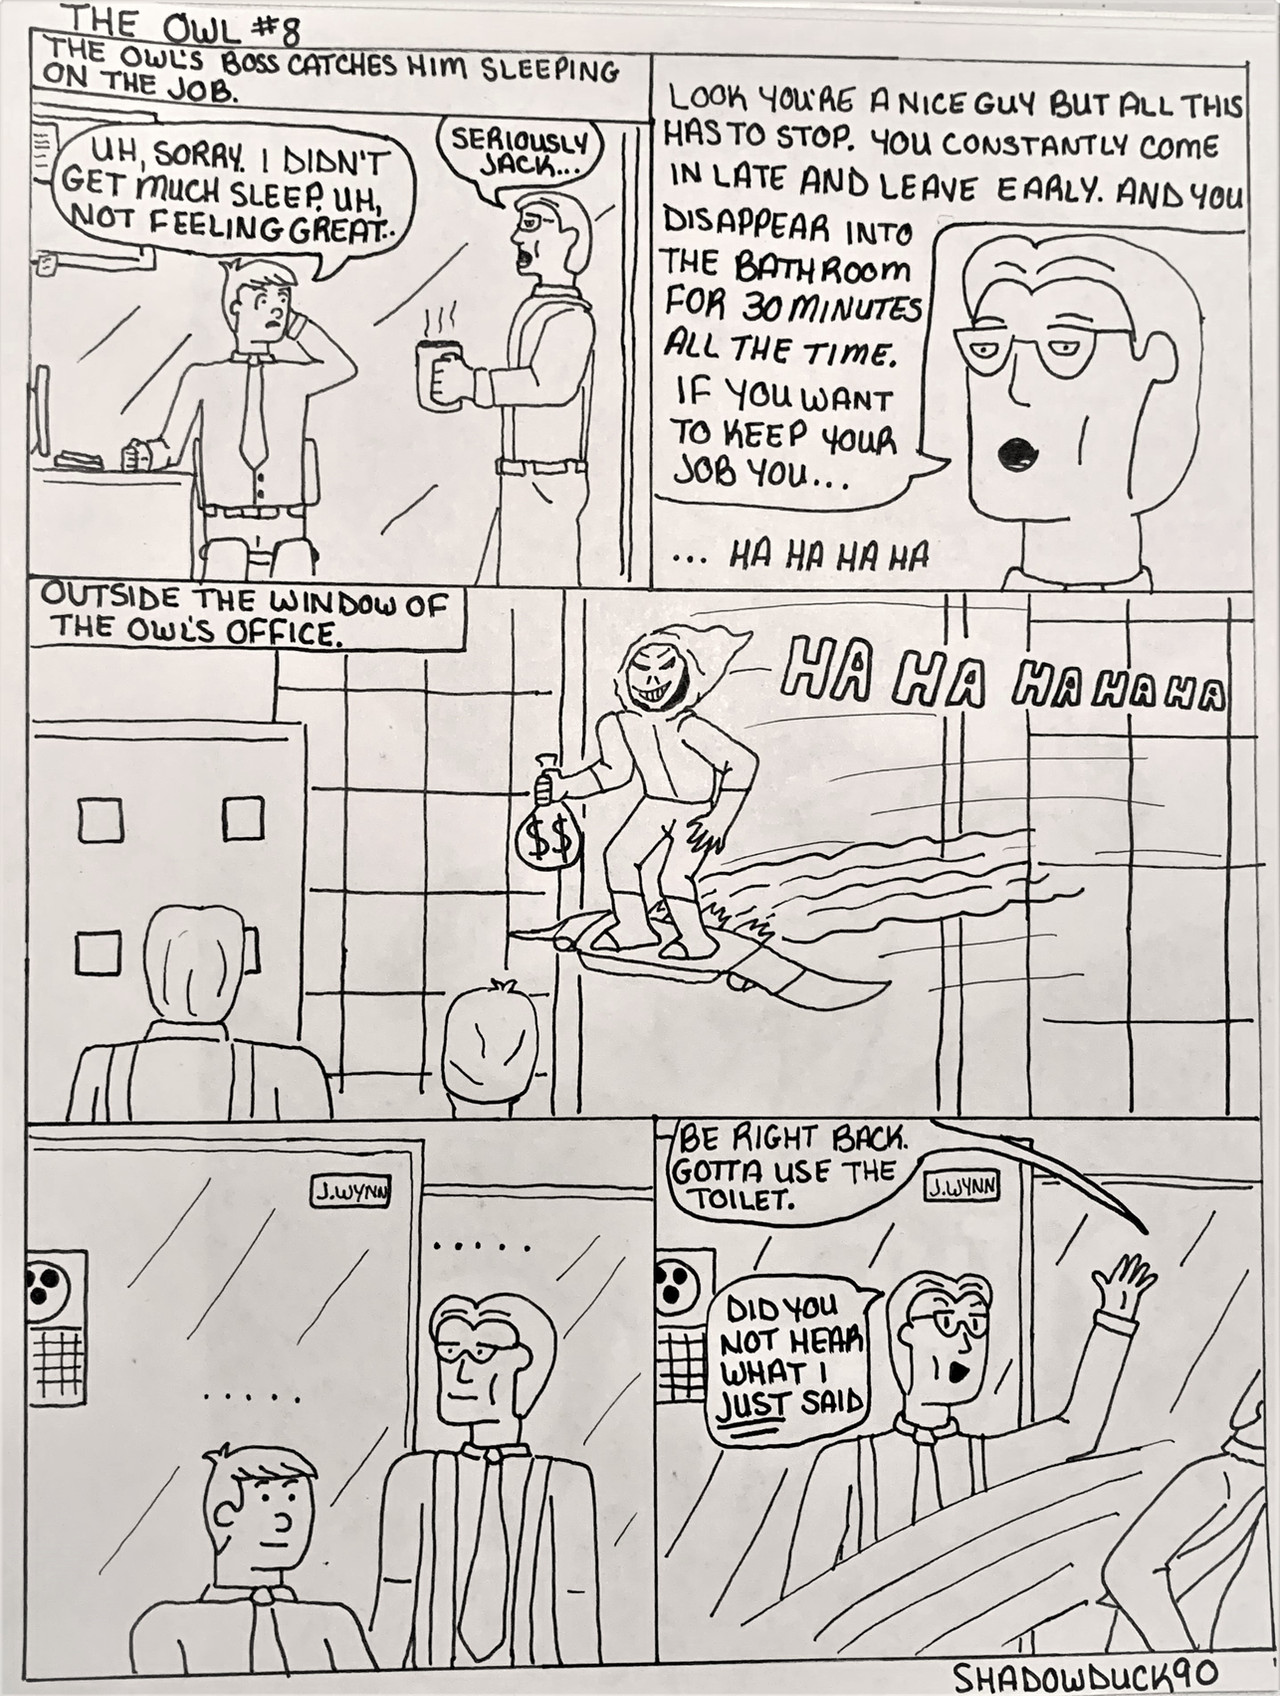 THE OWL #8
THE OWL'S BOSS CATCHES HIM SLEEPING
ON THE JOB.
UH, SORRY. I DIDN'T
GET MUCH SLEEP. UH,
NOT FEELING GREAT..
SERIOUSLY
JACK...
LOOK YOU'RE A NICE GUY BUT ALL THIS
HAS TO STOP. YOU CONSTANTLY COME
IN LATE AND LEAVE EARLY. AND YOU
DISAPPEAR INTO
THE BATHROOM
FOR 30 MINUTES
ALL THE TIME.
IF YOU WANT
TO KEEP YOUR
JOB YOU...
... HA HA HA HA
OUTSIDE THE WINDOW OF
THE OWL'S OFFICE.
HA HA HA HA HA
$$
J.WYNN
.....
.....
BE RIGHT BACK.
GOTTA USE THE
TOILET.
J.WYNN
DID YOU
NOT HEAR
WHAT I
JUST SAID
SHADOWDUCK90